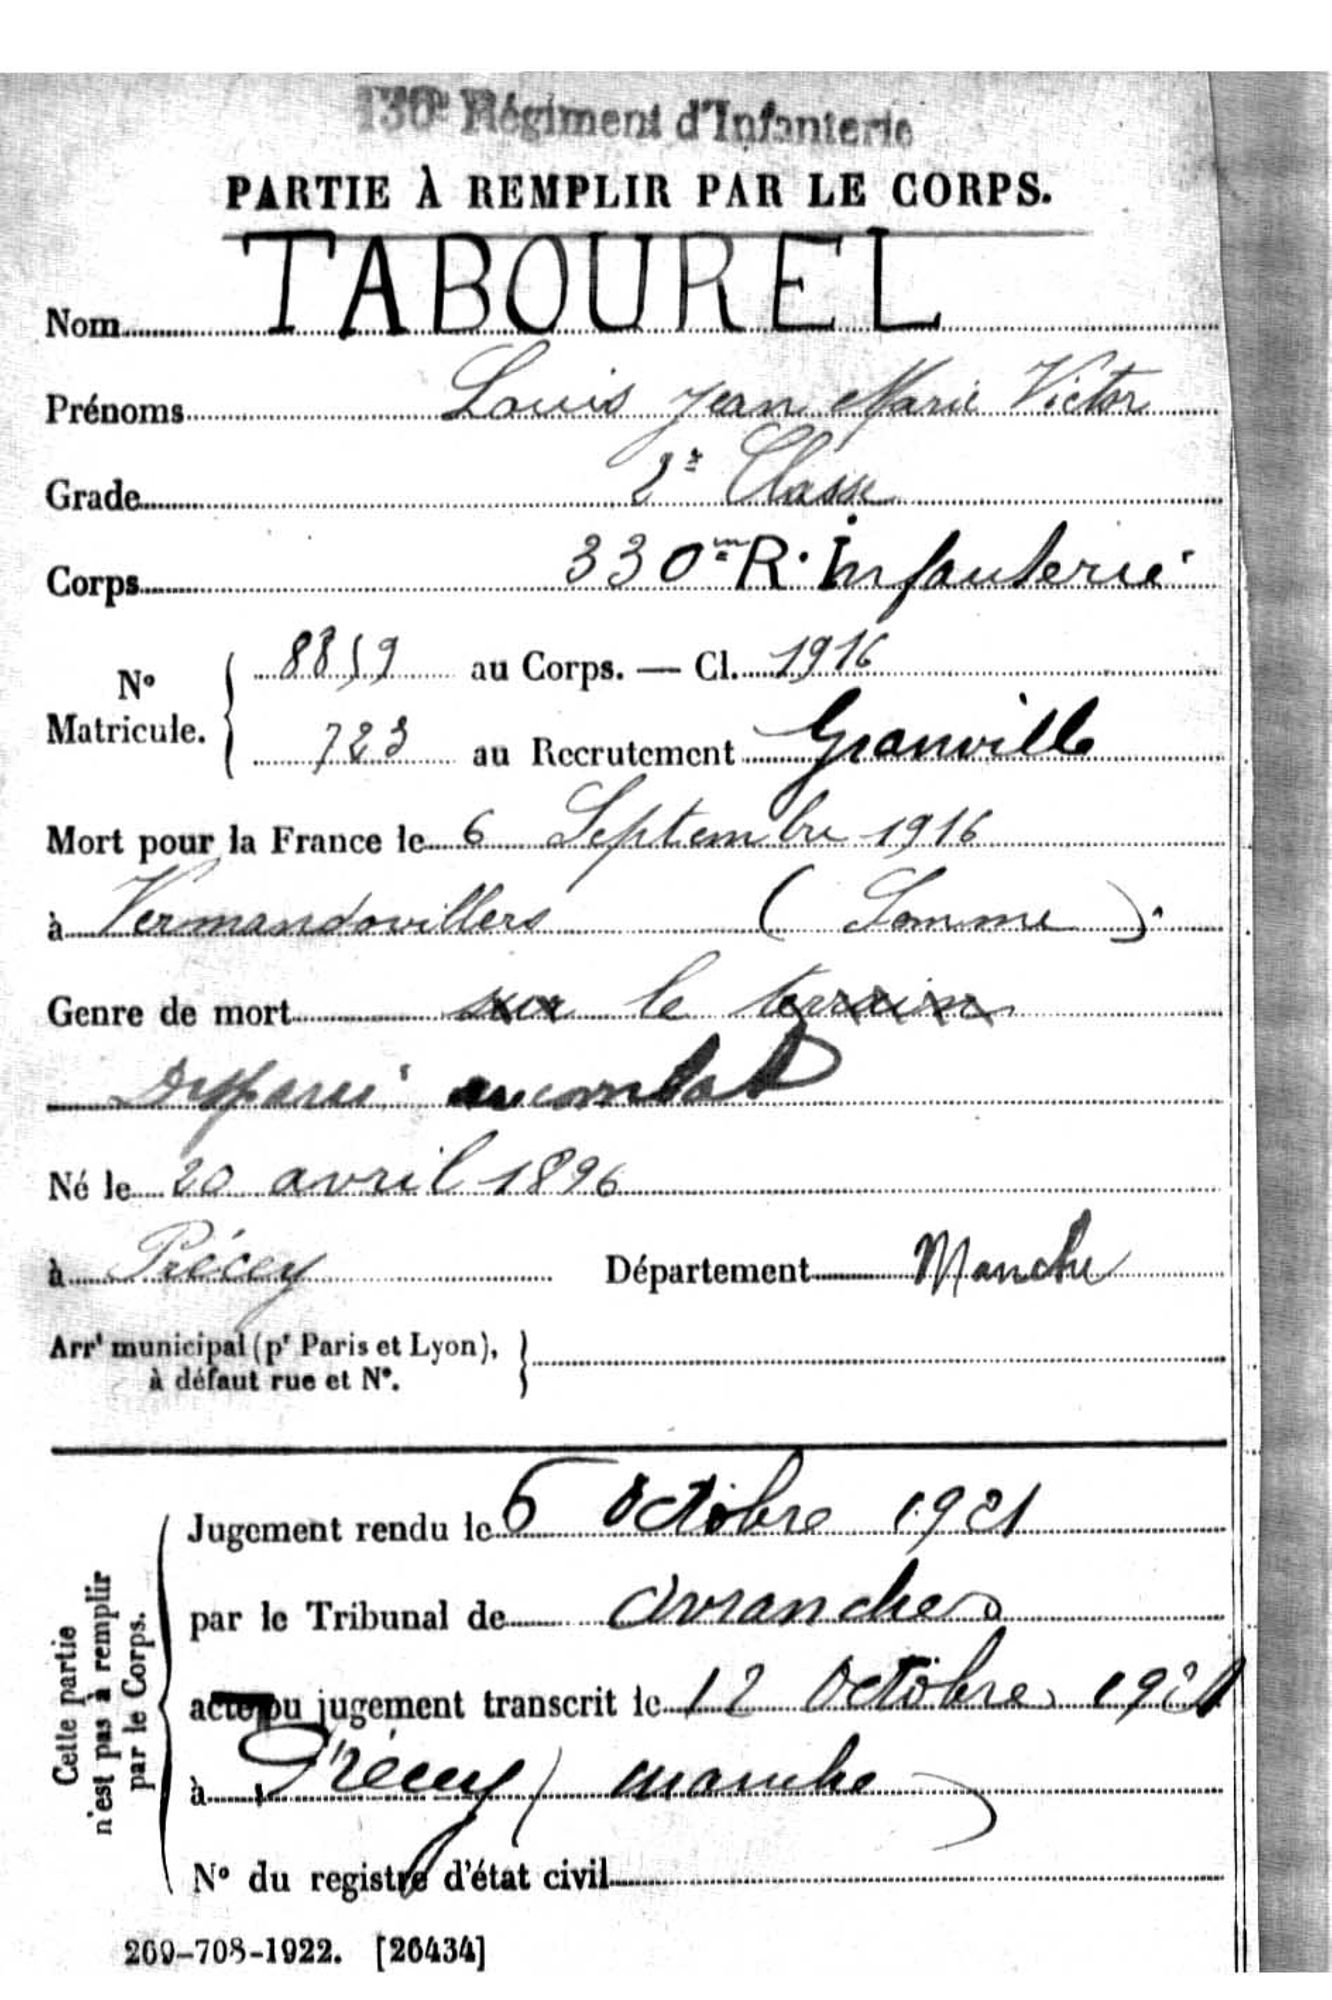 130e Régiment d'Infanterie
PARTIE À REMPLIR PAR LE CORPS.
Nom TABOUREL
Prénoms Louis Jean Marie Victor
Grade 2e Classe
Corps 330me R. Infanterie
No Matricule. 8859 au Corps. — Cl. 1916
723 au Recrutement Granville
Mort pour la France le 6 Septembre 1916
à Vermandovillers (Somme).
Genre de mort sur le terrain
Disparu au combat
Né le 20 avril 1896
à Précey Département Manche
Arrt municipal (pr Paris et Lyon),
à défaut rue et No.
Cette partie
n'est pas à remplir
par le Corps.
Jugement rendu le 6 Octobre 1921
par le Tribunal de Avranches
acte ou jugement transcrit le 12 Octobre 1921
à Précey (Manche)
No du registre d'état civil
269-708-1922. [26434]